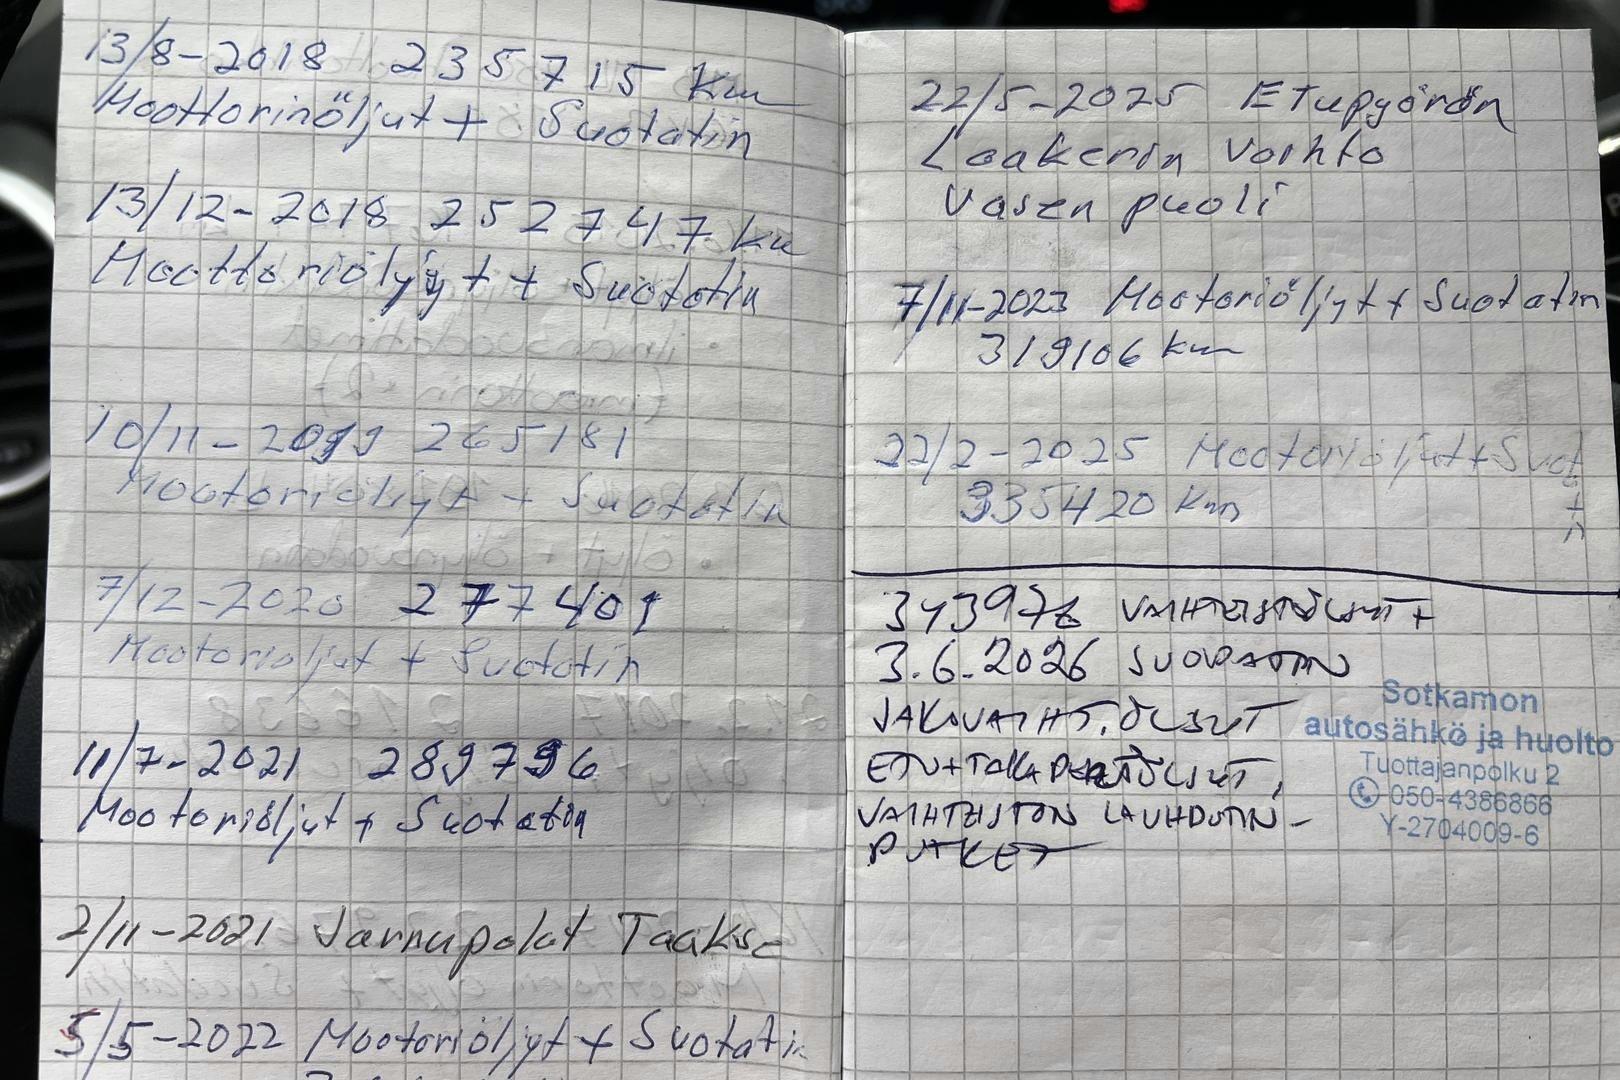 13/8-2018 235715 km
Moottorinöljyt + Suotatin
13/12-2018 252747 km
Moottoriöljyyt + Suotatin
10/11-2019 265181
Mootoriöljyt + Suotatin
7/12-2020 277401
Mootorioljyt + Suotatin
11/7-2021 289796
Mootoriöljyt + Suotatin
2/11-2021 Jarrupalat Taakse
5/5-2022 Mootoriöljyt + Suotatin
22/5-2025 ETupyörän
Laakerin Vaihto
Vasen puoli
7/11-2023 Mootoriöljyt + Suotatin
319106 km
22/2-2025 Mootoriöljyt + Suotatin
335420 km
343976 VAIHTEISTÖLJYT +
3.6.2026 SUODATIN
JAKOVAIHT. ÖLJYT
ETU+TAKAPERÄÖLJYT,
VAIHTEISTON LAUHDUTIN-
PUTKET
Sotkamon
autosähkö ja huolto
Tuottajanpolku 2
050-4386866
Y-2704009-6